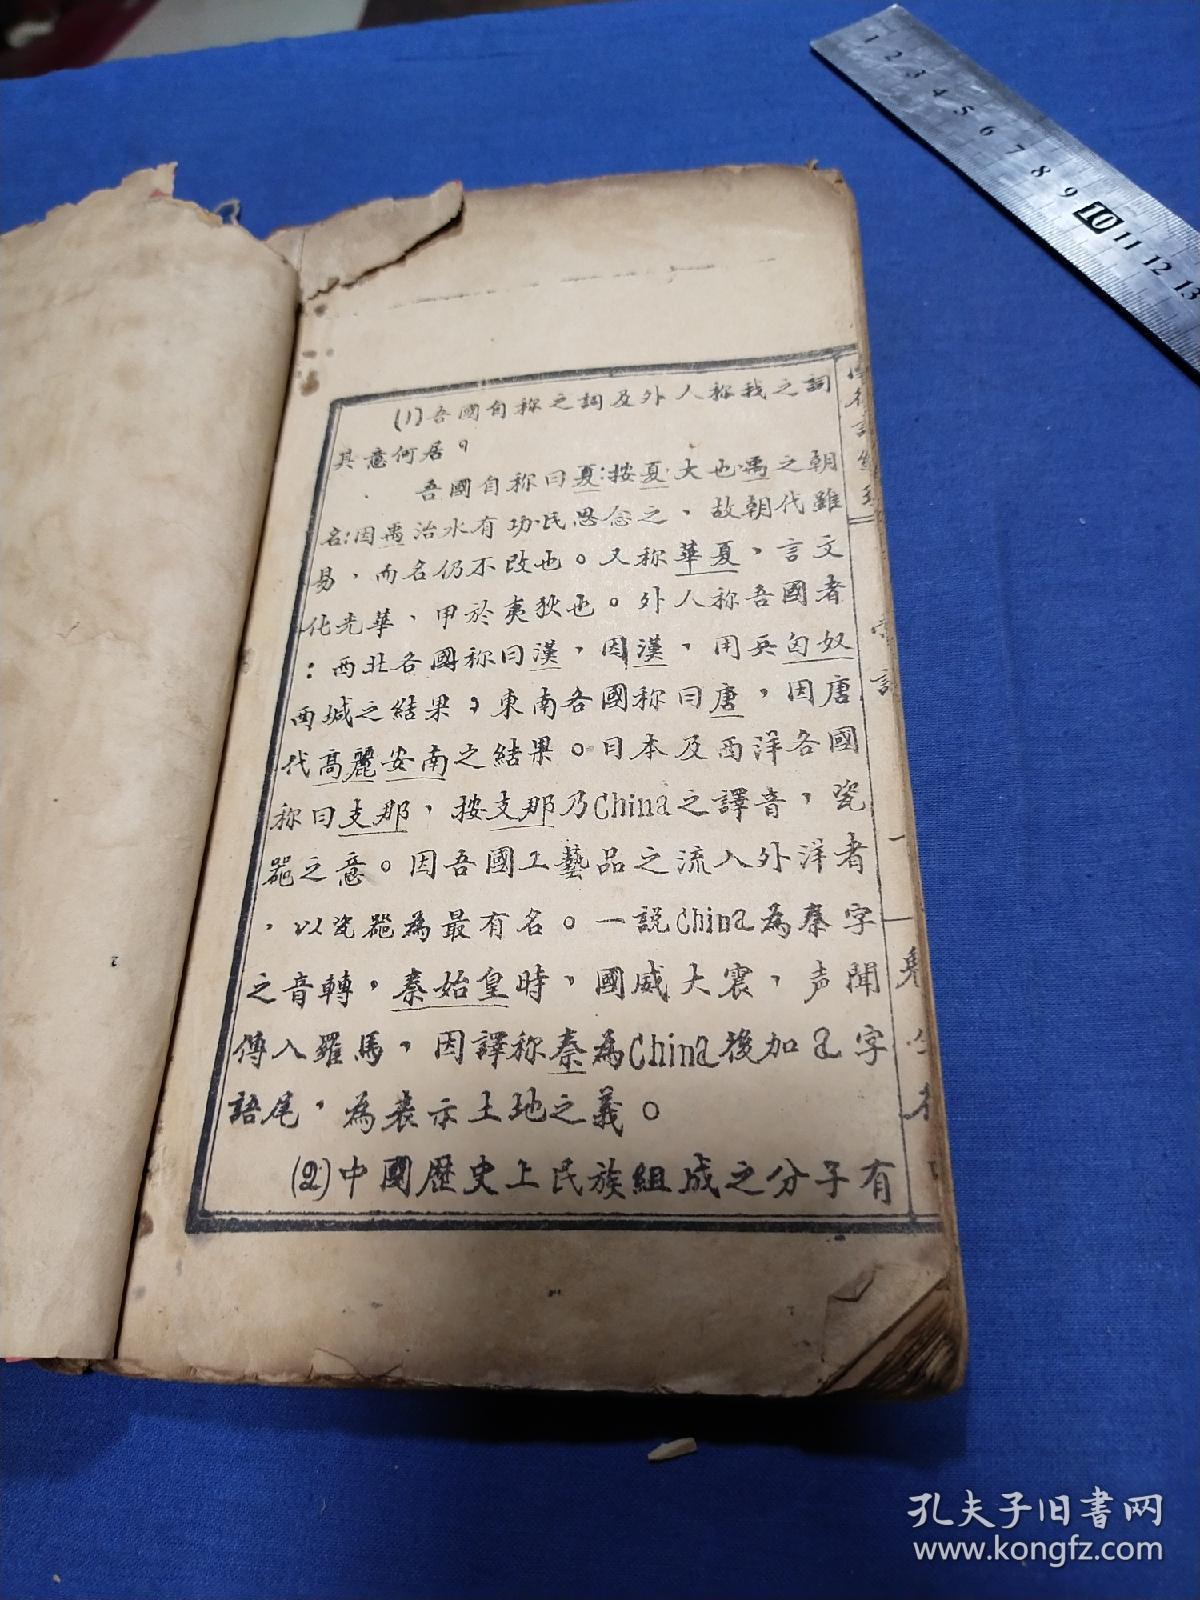 (1)吾國自称之詞及外人称我之詞
其意何居。
吾國自称曰夏:按夏大也禹之朝
名:因禹治水有功民思念之、故朝代雖
易,而名仍不改也。又称華夏,言文
化光華、甲於夷狄也。外人称吾國者
:西北各國称曰漢,因漢,用兵匈奴
西域之結果,東南各國称曰唐,因唐
代高麗安南之結果。日本及西洋各國
称曰支那,按支那乃China之譯音,瓷
器之意。因吾國工藝品之流入外洋者
,以瓷器為最有名。一説China為秦字
之音轉,秦始皇時,國威大震,声聞
傳入羅馬,因譯称秦為China後加a字
語尾,為表示土地之義。
(2)中國歷史上民族組成之分子有
1 2 3 4 5 6 7 8 9 10 11 12 13
孔夫子旧書网
www.kongfz.com